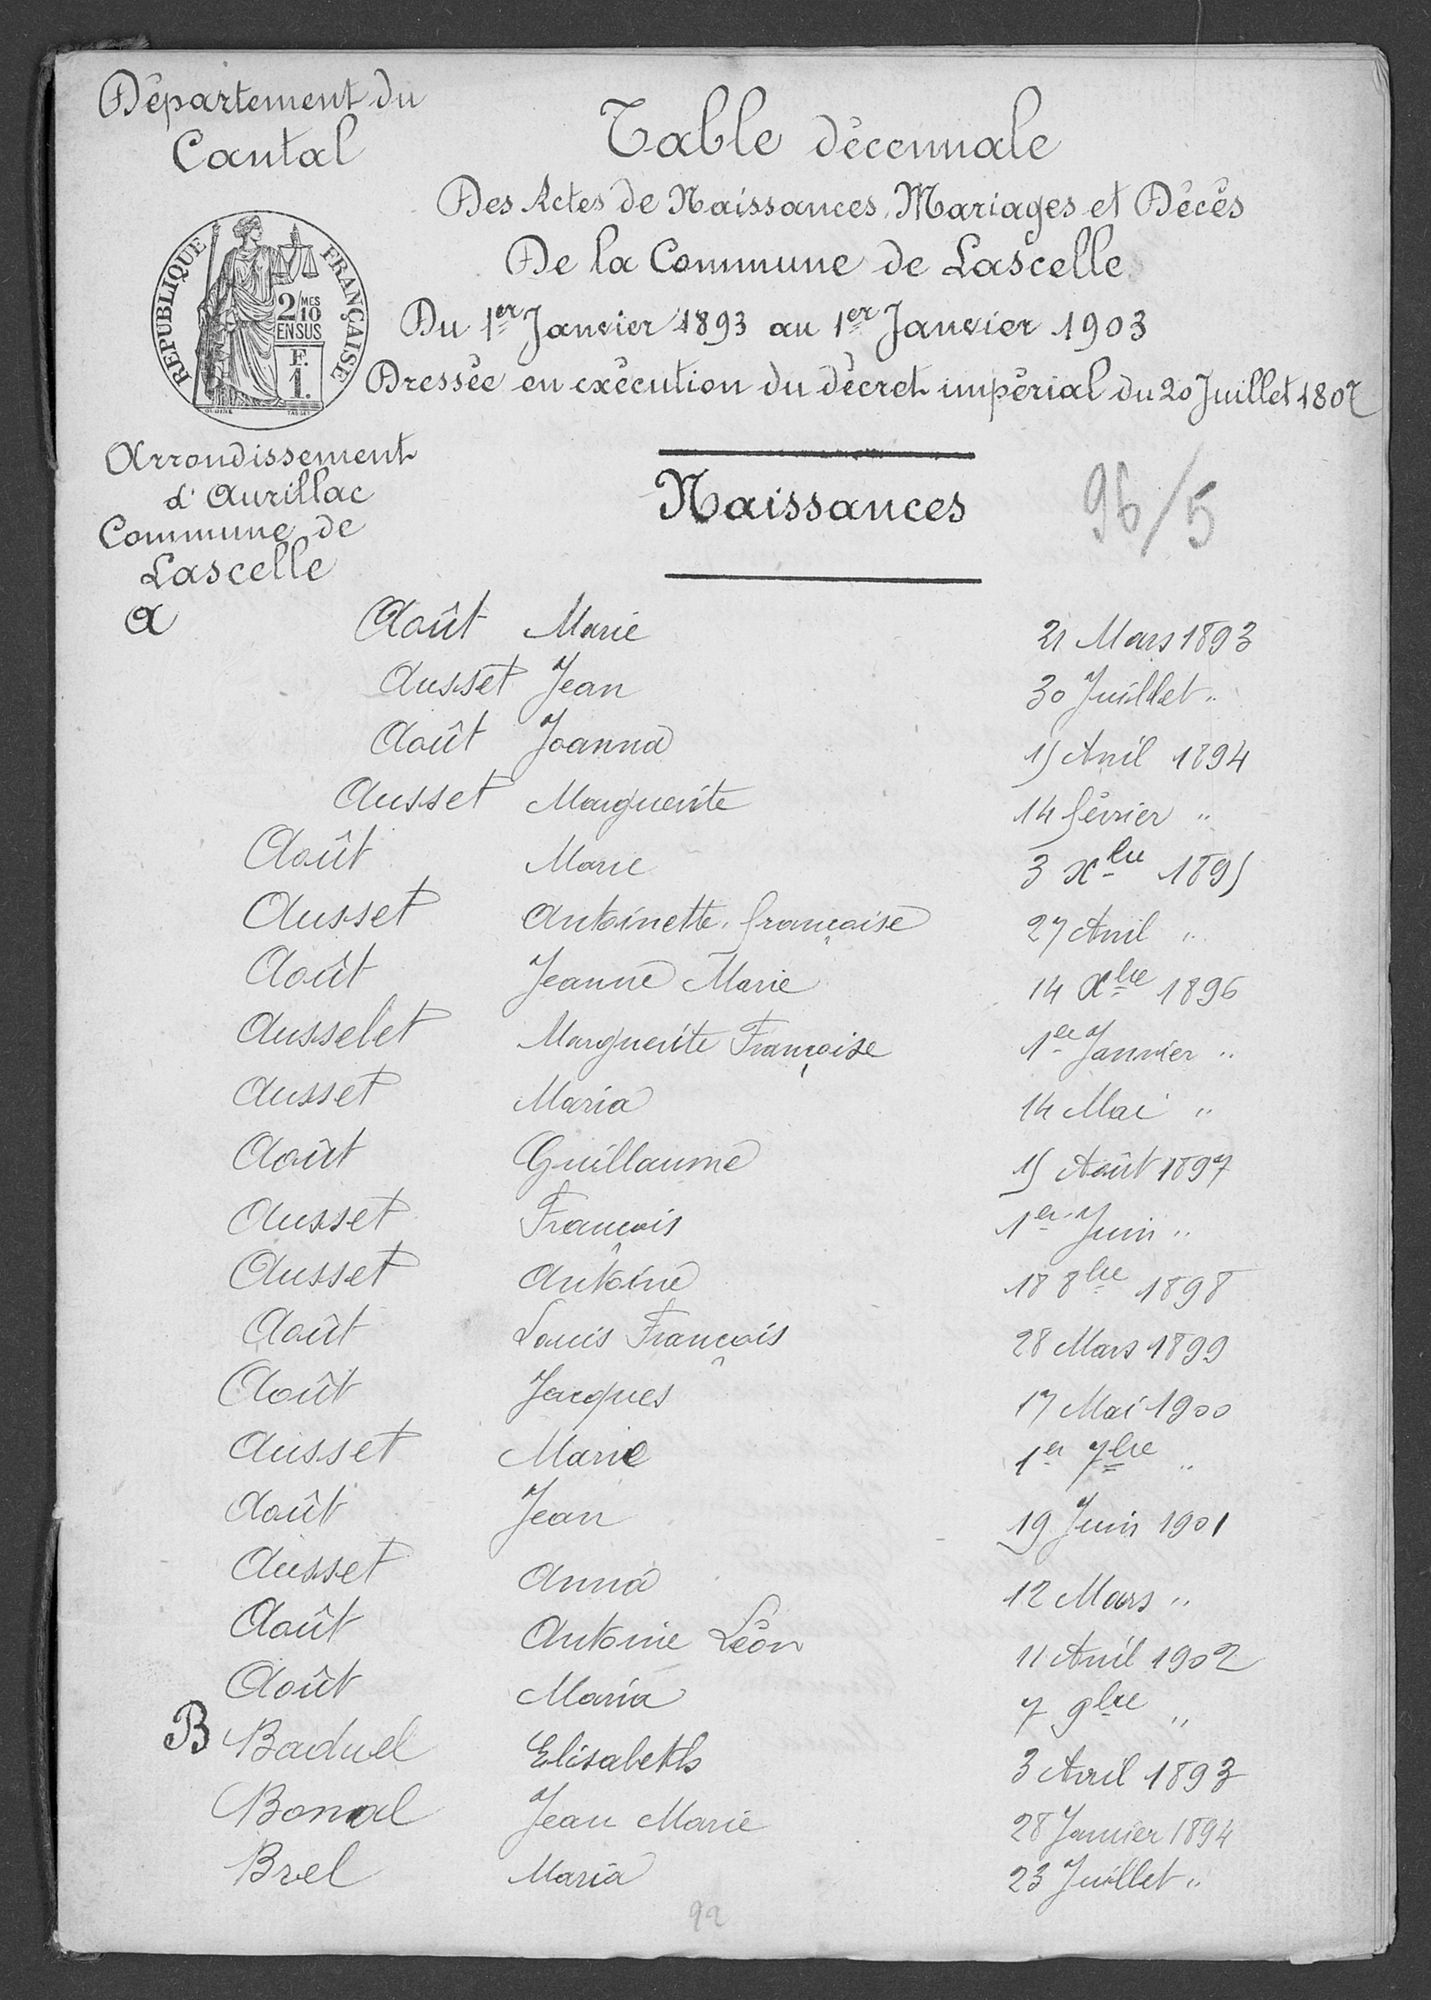 Département du
Cantal
Table décennale
Des Actes de Naissances, Mariages et Décès
De la Commune de Lascelle
Du 1er Janvier 1893 au 1er Janvier 1903
Dressée en exécution du décret impérial du 20 Juillet 1807
RÉPUBLIQUE FRANÇAISE
2/MES
10
EN SUS
F.
1.
Arrondissement
d'Aurillac
Commune de
Lascelle
Naissances
96/5
A
Août Marie 21 Mars 1893
Ausset Jean 30 Juillet "
Août Joanna 15 Avril 1894
Ausset Marguerite 14 février "
Août Marie 3 Xbre 1895
Ausset Antoinette, françoise 27 Avril "
Août Jeanne Marie 14 Xbre 1896
Ausselet Marguerite Françoise 1er Janvier "
Ausset Maria 14 Mai "
Août Guillaume 15 Août 1897
Ausset François 1er Juin "
Ausset Antoine 18 8bre 1898
Août Louis François 28 Mars 1899
Août Jacques 17 Mai 1900
Ausset Marie 1er 7bre "
Août Jean 19 Juin 1901
Ausset Anna 12 Mars "
Août Antoine Léon 11 Avril 1902
Août Maria 7 9bre "
B Baduel Elisabeth 3 Avril 1893
Bonal Jean Marie 28 Janvier 1894
Brel Maria 23 Juillet "